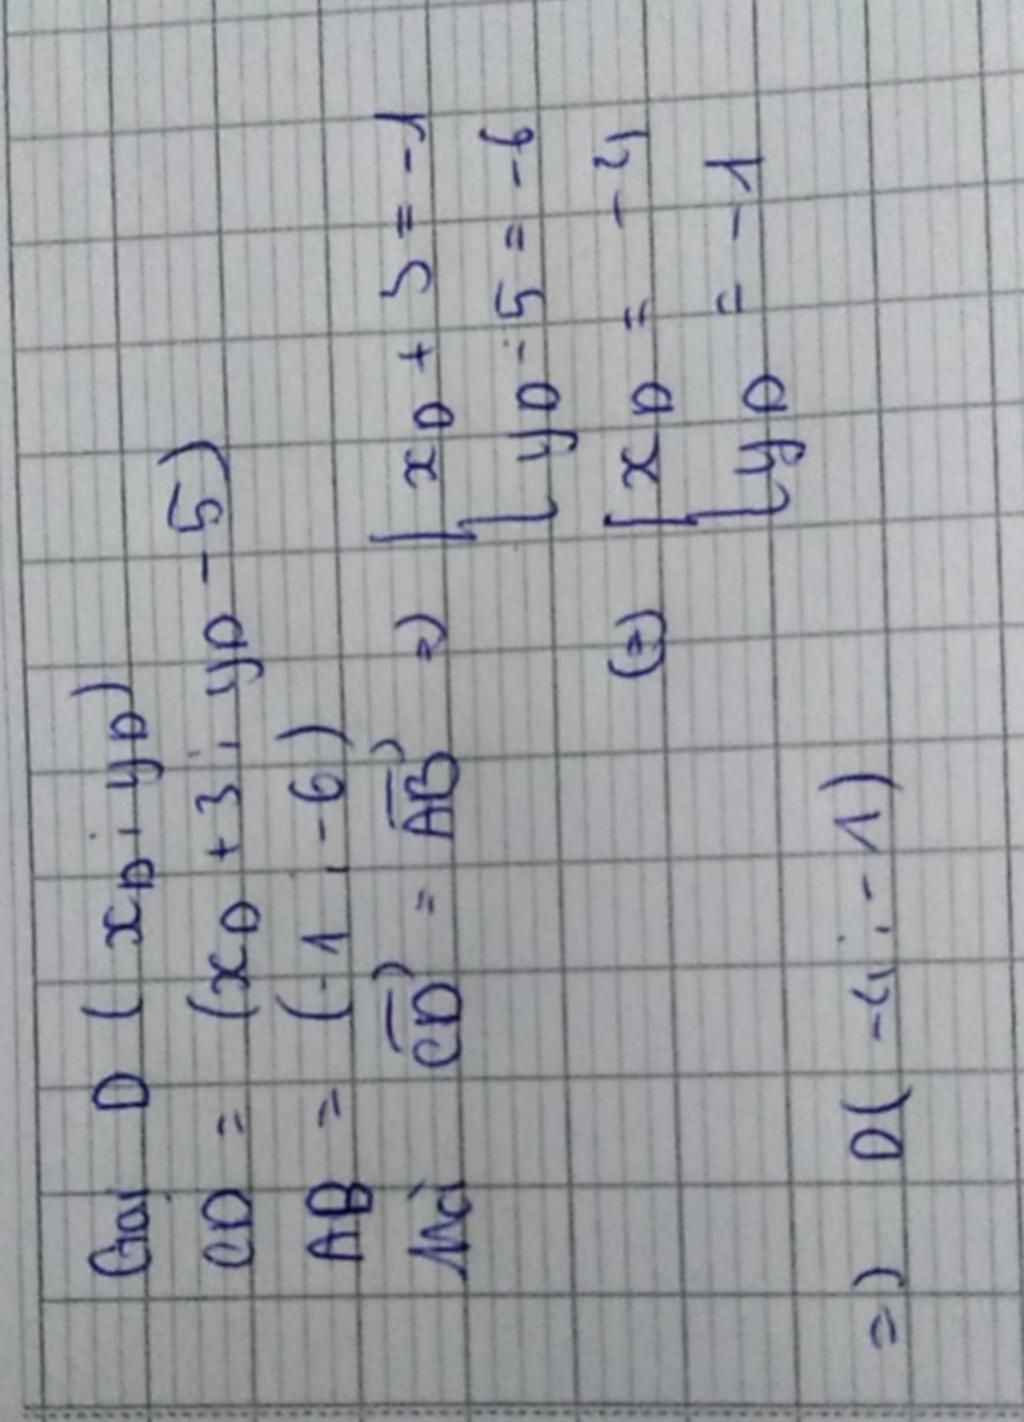 Gọi D ( xD ; yD )
CD = (xD + 3 ; yD - 5)
AB = (-1 , -6 )
Mà CD = AB => { xD + 3 = -1
{ yD - 5 = -6
(=) { xD = -4
{ yD = -1
=) D( -4 ; -1 )